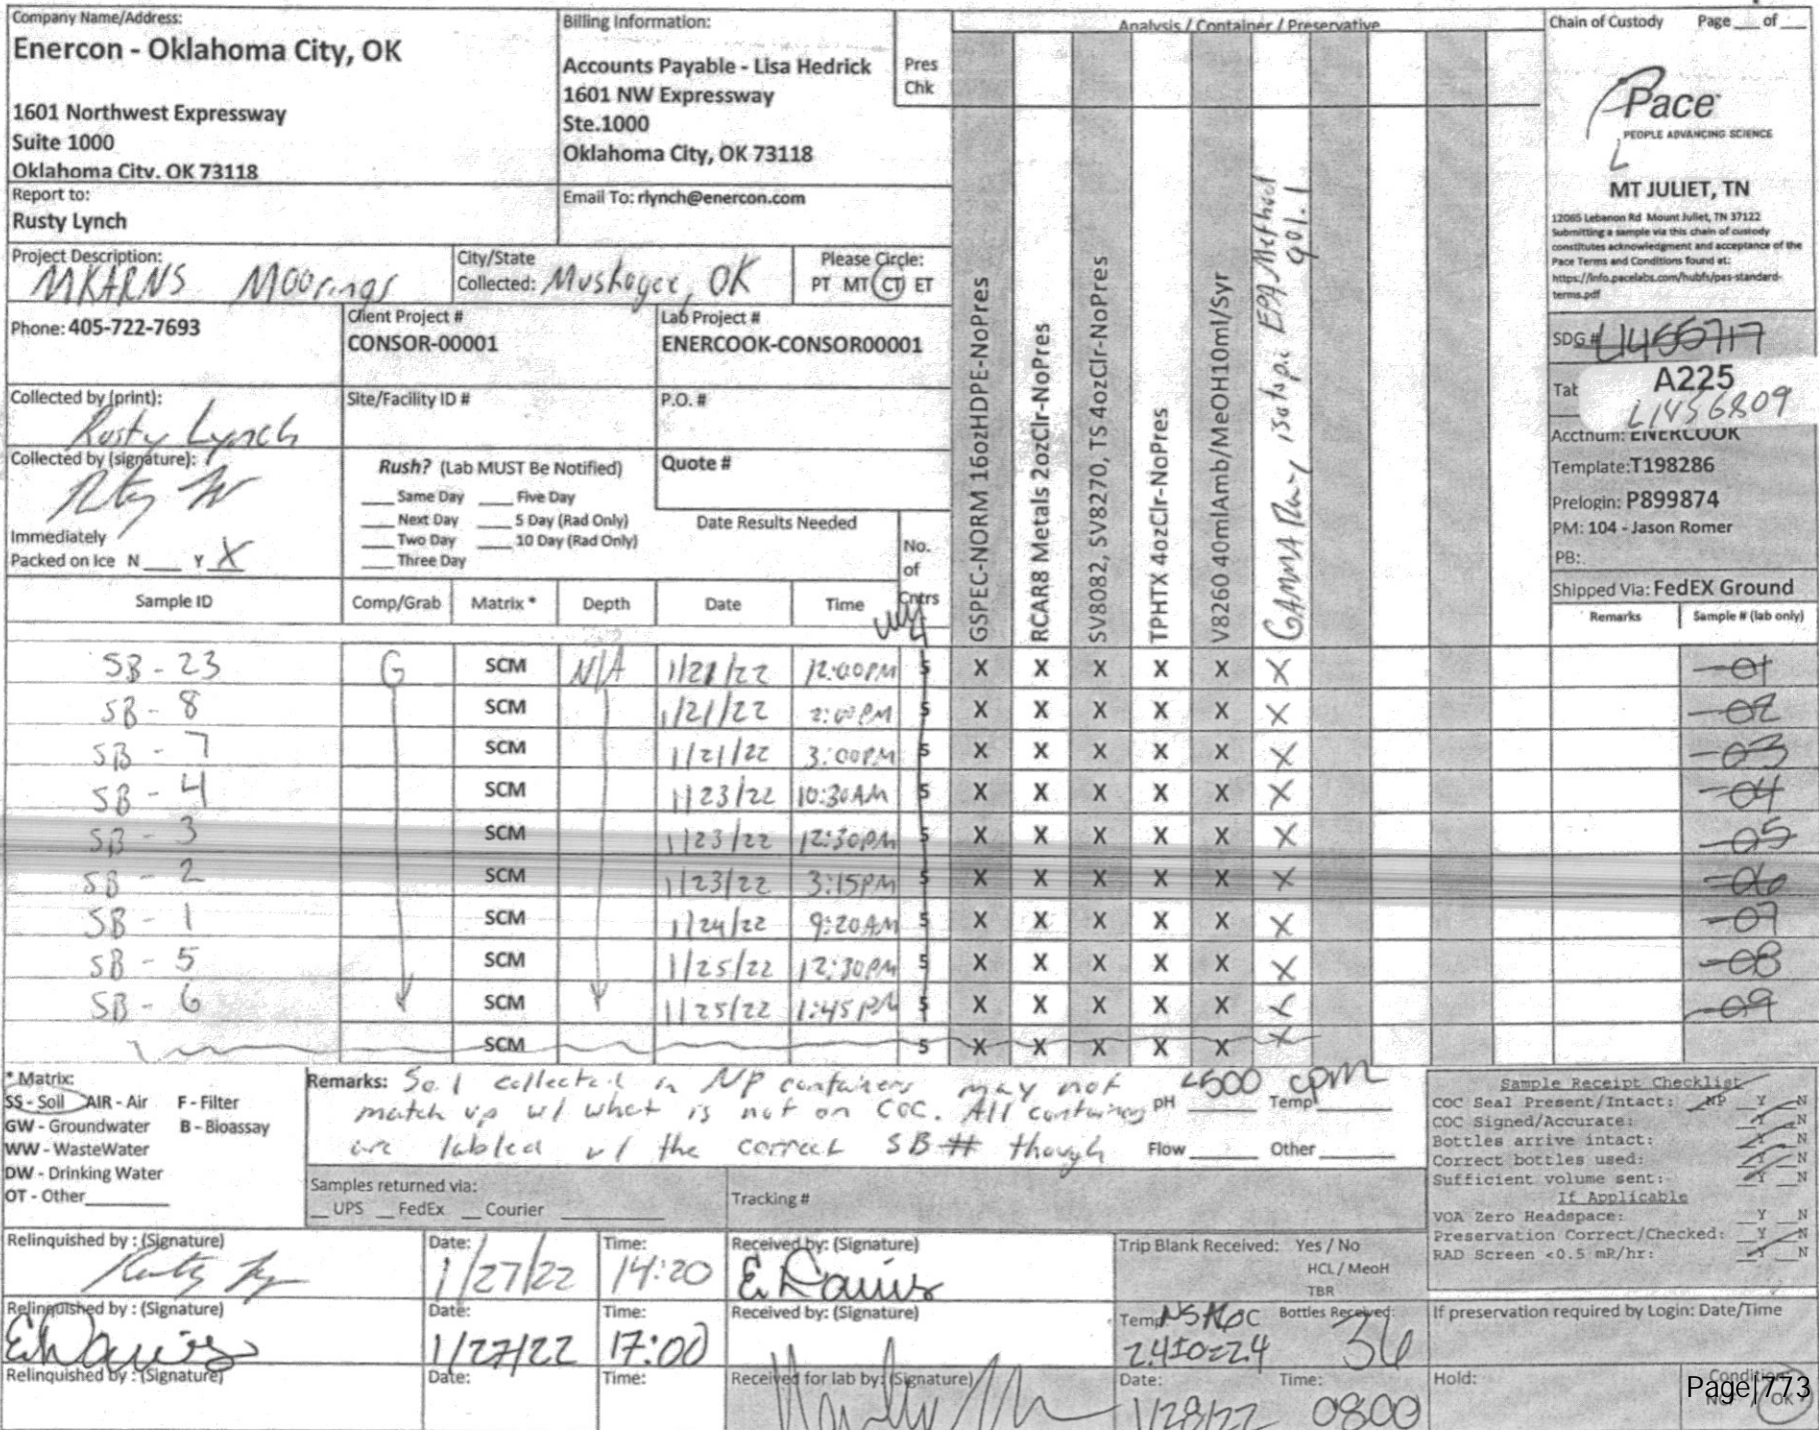 Company Name/Address:
Enercon - Oklahoma City, OK
1601 Northwest Expressway
Suite 1000
Oklahoma City, OK 73118
Billing Information:
Accounts Payable - Lisa Hedrick
1601 NW Expressway
Ste.1000
Oklahoma City, OK 73118
Pres
Chk
Analysis / Container / Preservative
Chain of Custody Page ___ of ___
Pace
PEOPLE ADVANCING SCIENCE
MT JULIET, TN
12065 Lebanon Rd Mount Juliet, TN 37122
Submitting a sample via this chain of custody
constitutes acknowledgment and acceptance of the
Pace Terms and Conditions found at:
https://info.pacelabs.com/hubfs/pas-standard-
terms.pdf
Report to:
Rusty Lynch
Email To: rlynch@enercon.com
Project Description:
MKARNS Moorings
City/State
Collected: Muskogee, OK
Please Circle:
PT MT CT ET
Phone: 405-722-7693
Client Project #
CONSOR-00001
Lab Project #
ENERCOOK-CONSOR00001
Collected by (print):
Rusty Lynch
Site/Facility ID #
P.O. #
Collected by (signature):
Rush? (Lab MUST Be Notified)
___ Same Day ___ Five Day
___ Next Day ___ 5 Day (Rad Only)
___ Two Day ___ 10 Day (Rad Only)
___ Three Day
Quote #
Date Results Needed
Immediately
Packed on Ice N ___ Y X
No.
of
Cntrs
GSPEC-NORM 16ozHDPE-NoPres
RCAR8 Metals 2ozClr-NoPres
SV8082, SV8270, TS 4ozClr-NoPres
TPHTX 4ozClr-NoPres
V8260 40mlAmb/MeOH10ml/Syr
GAMMA Ray, isotopic EPA Method
901.1
SDG # L1455717
Tab
A225
L1456809
Acctnum: ENERCOOK
Template:T198286
Prelogin: P899874
PM: 104 - Jason Romer
PB:
Shipped Via: FedEX Ground
Remarks Sample # (lab only)
Sample ID Comp/Grab Matrix * Depth Date Time
SB - 23 G SCM N/A 1/21/22 12:00PM 5 X X X X X X -01
SB - 8 SCM 1/21/22 2:00PM 5 X X X X X X -02
SB - 7 SCM 1/21/22 3:00PM 5 X X X X X X -03
SB - 4 SCM 1/23/22 10:30AM 5 X X X X X X -04
SB - 3 SCM 1/23/22 12:30PM 5 X X X X X X -05
SB - 2 SCM 1/23/22 3:15PM 5 X X X X X X -06
SB - 1 SCM 1/24/22 9:20AM 5 X X X X X X -07
SB - 5 SCM 1/25/22 12:30PM 5 X X X X X X -08
SB - 6 SCM 1/25/22 1:45PM 5 X X X X X X -09
SCM 5 X X X X X X
* Matrix:
SS - Soil AIR - Air F - Filter
GW - Groundwater B - Bioassay
WW - WasteWater
DW - Drinking Water
OT - Other___
Remarks: Soil collected in NP containers may not
match up w/ what is not on COC. All containers
are labled w/ the correct SB # though
<500 cpm
pH ___ Temp ___
Flow ___ Other ___
Sample Receipt Checklist
COC Seal Present/Intact: NP Y N
COC Signed/Accurate: Y N
Bottles arrive intact: Y N
Correct bottles used: Y N
Sufficient volume sent: Y N
If Applicable
VOA Zero Headspace: Y N
Preservation Correct/Checked: Y N
RAD Screen <0.5 mR/hr: Y N
Samples returned via:
__ UPS __ FedEx __ Courier ___
Tracking #
Relinquished by : (Signature)
Date: 1/27/22
Time: 14:20
Received by: (Signature)
Trip Blank Received: Yes / No
HCL / MeoH
TBR
Relinquished by : (Signature)
Date: 1/27/22
Time: 17:00
Received by: (Signature)
Temp °C
2.4±0=2.4
Bottles Received:
36
If preservation required by Login: Date/Time
Relinquished by : (Signature)
Date:
Time:
Received for lab by: (Signature)
Date: 1/28/22
Time: 0800
Hold:
Condition:
OK
Page|773